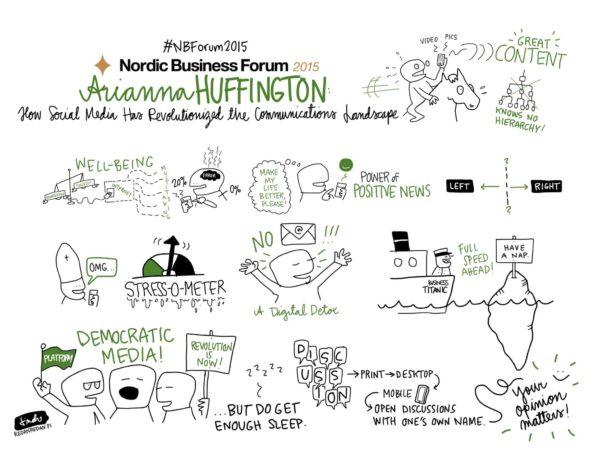 #NBForum2015
Nordic Business Forum 2015
Arianna HUFFINGTON:
How Social Media Has Revolutionized the Communications Landscape
VIDEO PICS
GREAT
CONTENT
KNOWS NO
HIERARCHY!
WELL-BEING
INTERNET
20%
ERROR
0%
MAKE
MY
LIFE
BETTER,
PLEASE!
POWER of
POSITIVE NEWS
LEFT
?
?
RIGHT
OMG...
STRESS-O-METER
NO !!!
A Digital Detox
FULL
SPEED
AHEAD!
BUSINESS
TITANIC
HAVE
A NAP.
PLATFORM
DEMOCRATIC
MEDIA!
REVOLUTION
IS
NOW!
zzzzz
...BUT DO GET
ENOUGH SLEEP.
DISC
USS
ION
→ PRINT → DESKTOP
MOBILE
OPEN DISCUSSIONS
WITH ONE'S OWN NAME.
Your
opinion
matters!